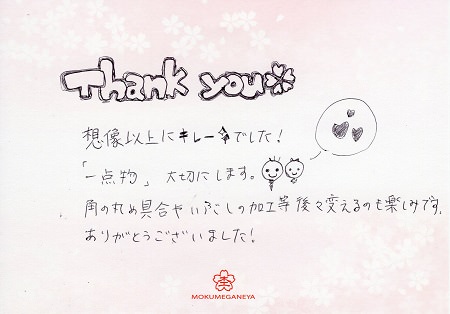 Thank you
想像以上にキレーでした！
「一点物」大切にします。
角の丸め具合やいぶしの加工等後々変えるのも楽しみです。
ありがとうございました！
MOKUMEGANEYA